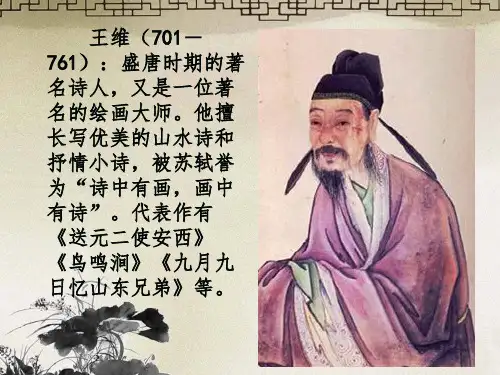 王维（701－
761）：盛唐时期的著
名诗人，又是一位著
名的绘画大师。他擅
长写优美的山水诗和
抒情小诗，被苏轼誉
为“诗中有画，画中
有诗”。代表作有
《送元二使安西》
《鸟鸣涧》《九月九
日忆山东兄弟》等。